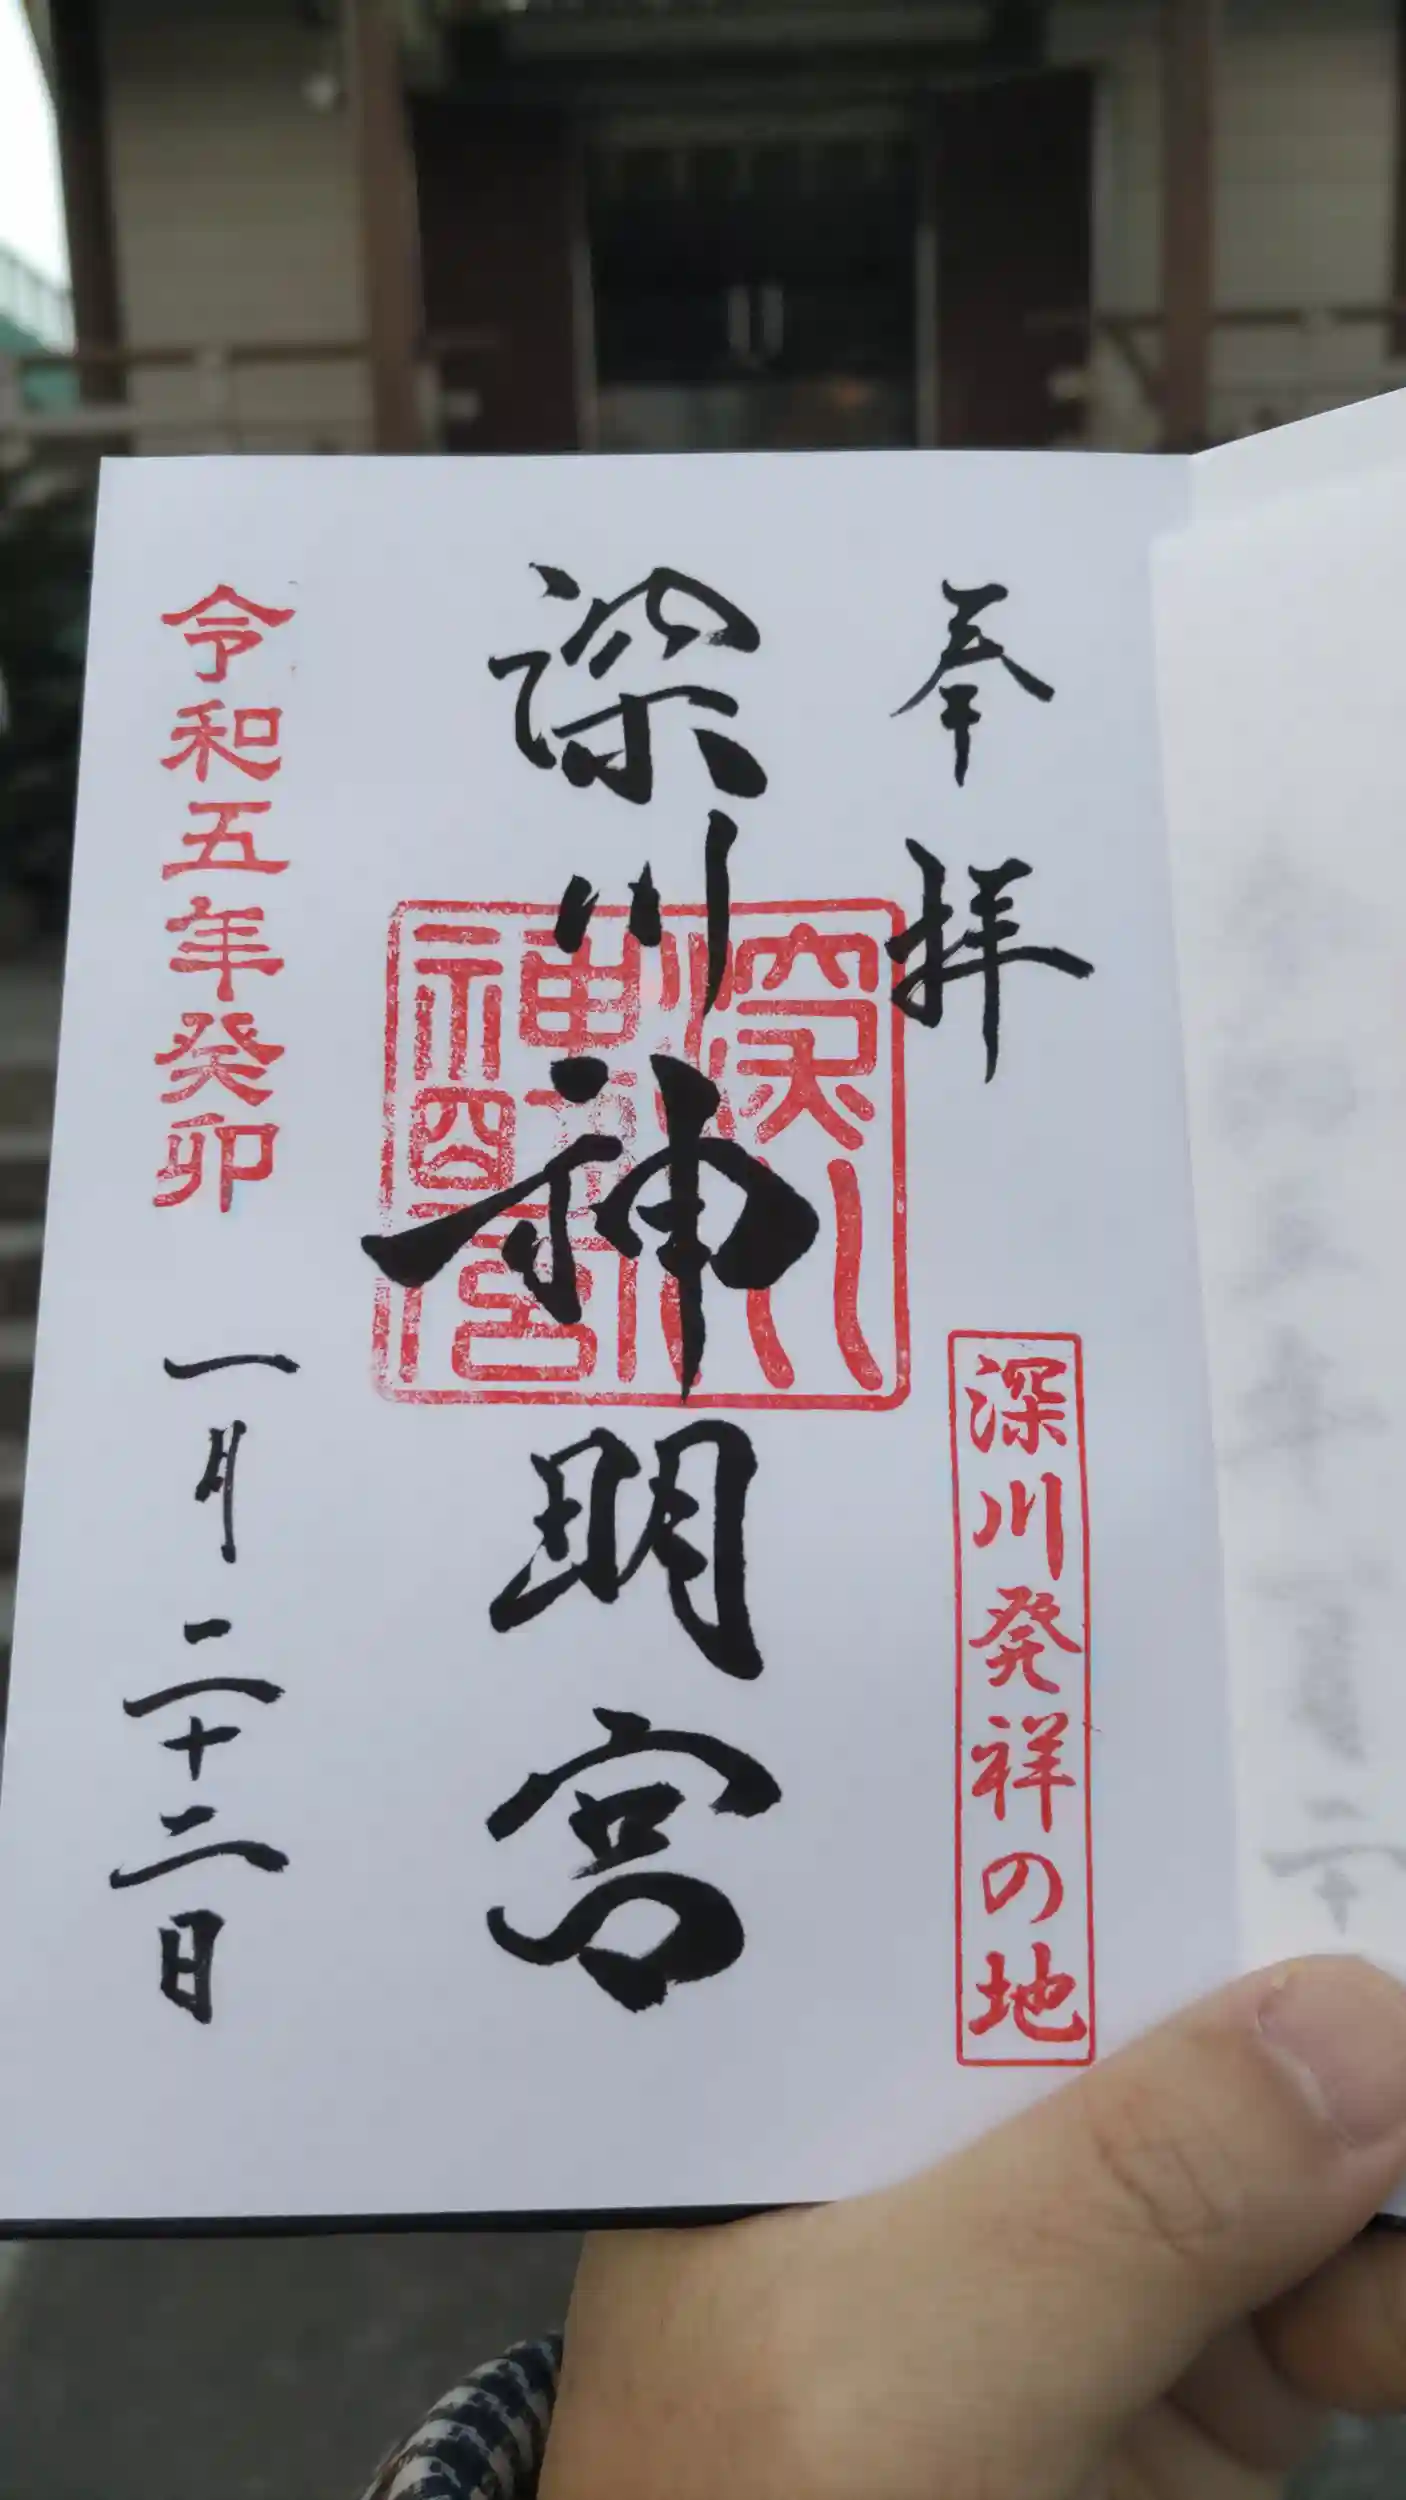 奉拝
深川発祥の地
深川神明宮
深川神明宮
令和五年癸卯
一月二十二日